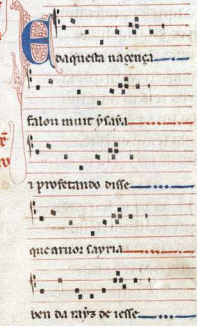 E
daquesta naçença
falou muit ysaya
⁊ profetando disse
que aruor sayria
ben da rayz de iesse